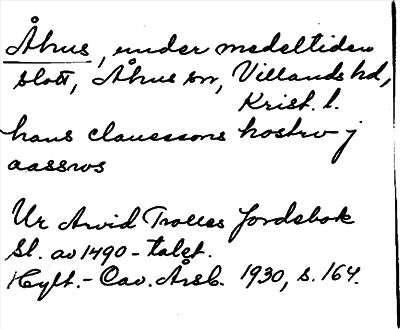 Åhus, under medeltiden
slott, Åhus sn, Villands hd,
Krist. l.
hans clauessons hostrv j
aasswos
Ur Arvid Trolles Jordebok
Sl. av 1490-talet.
Hylt.-Cav. Årsb. 1930, s. 164.